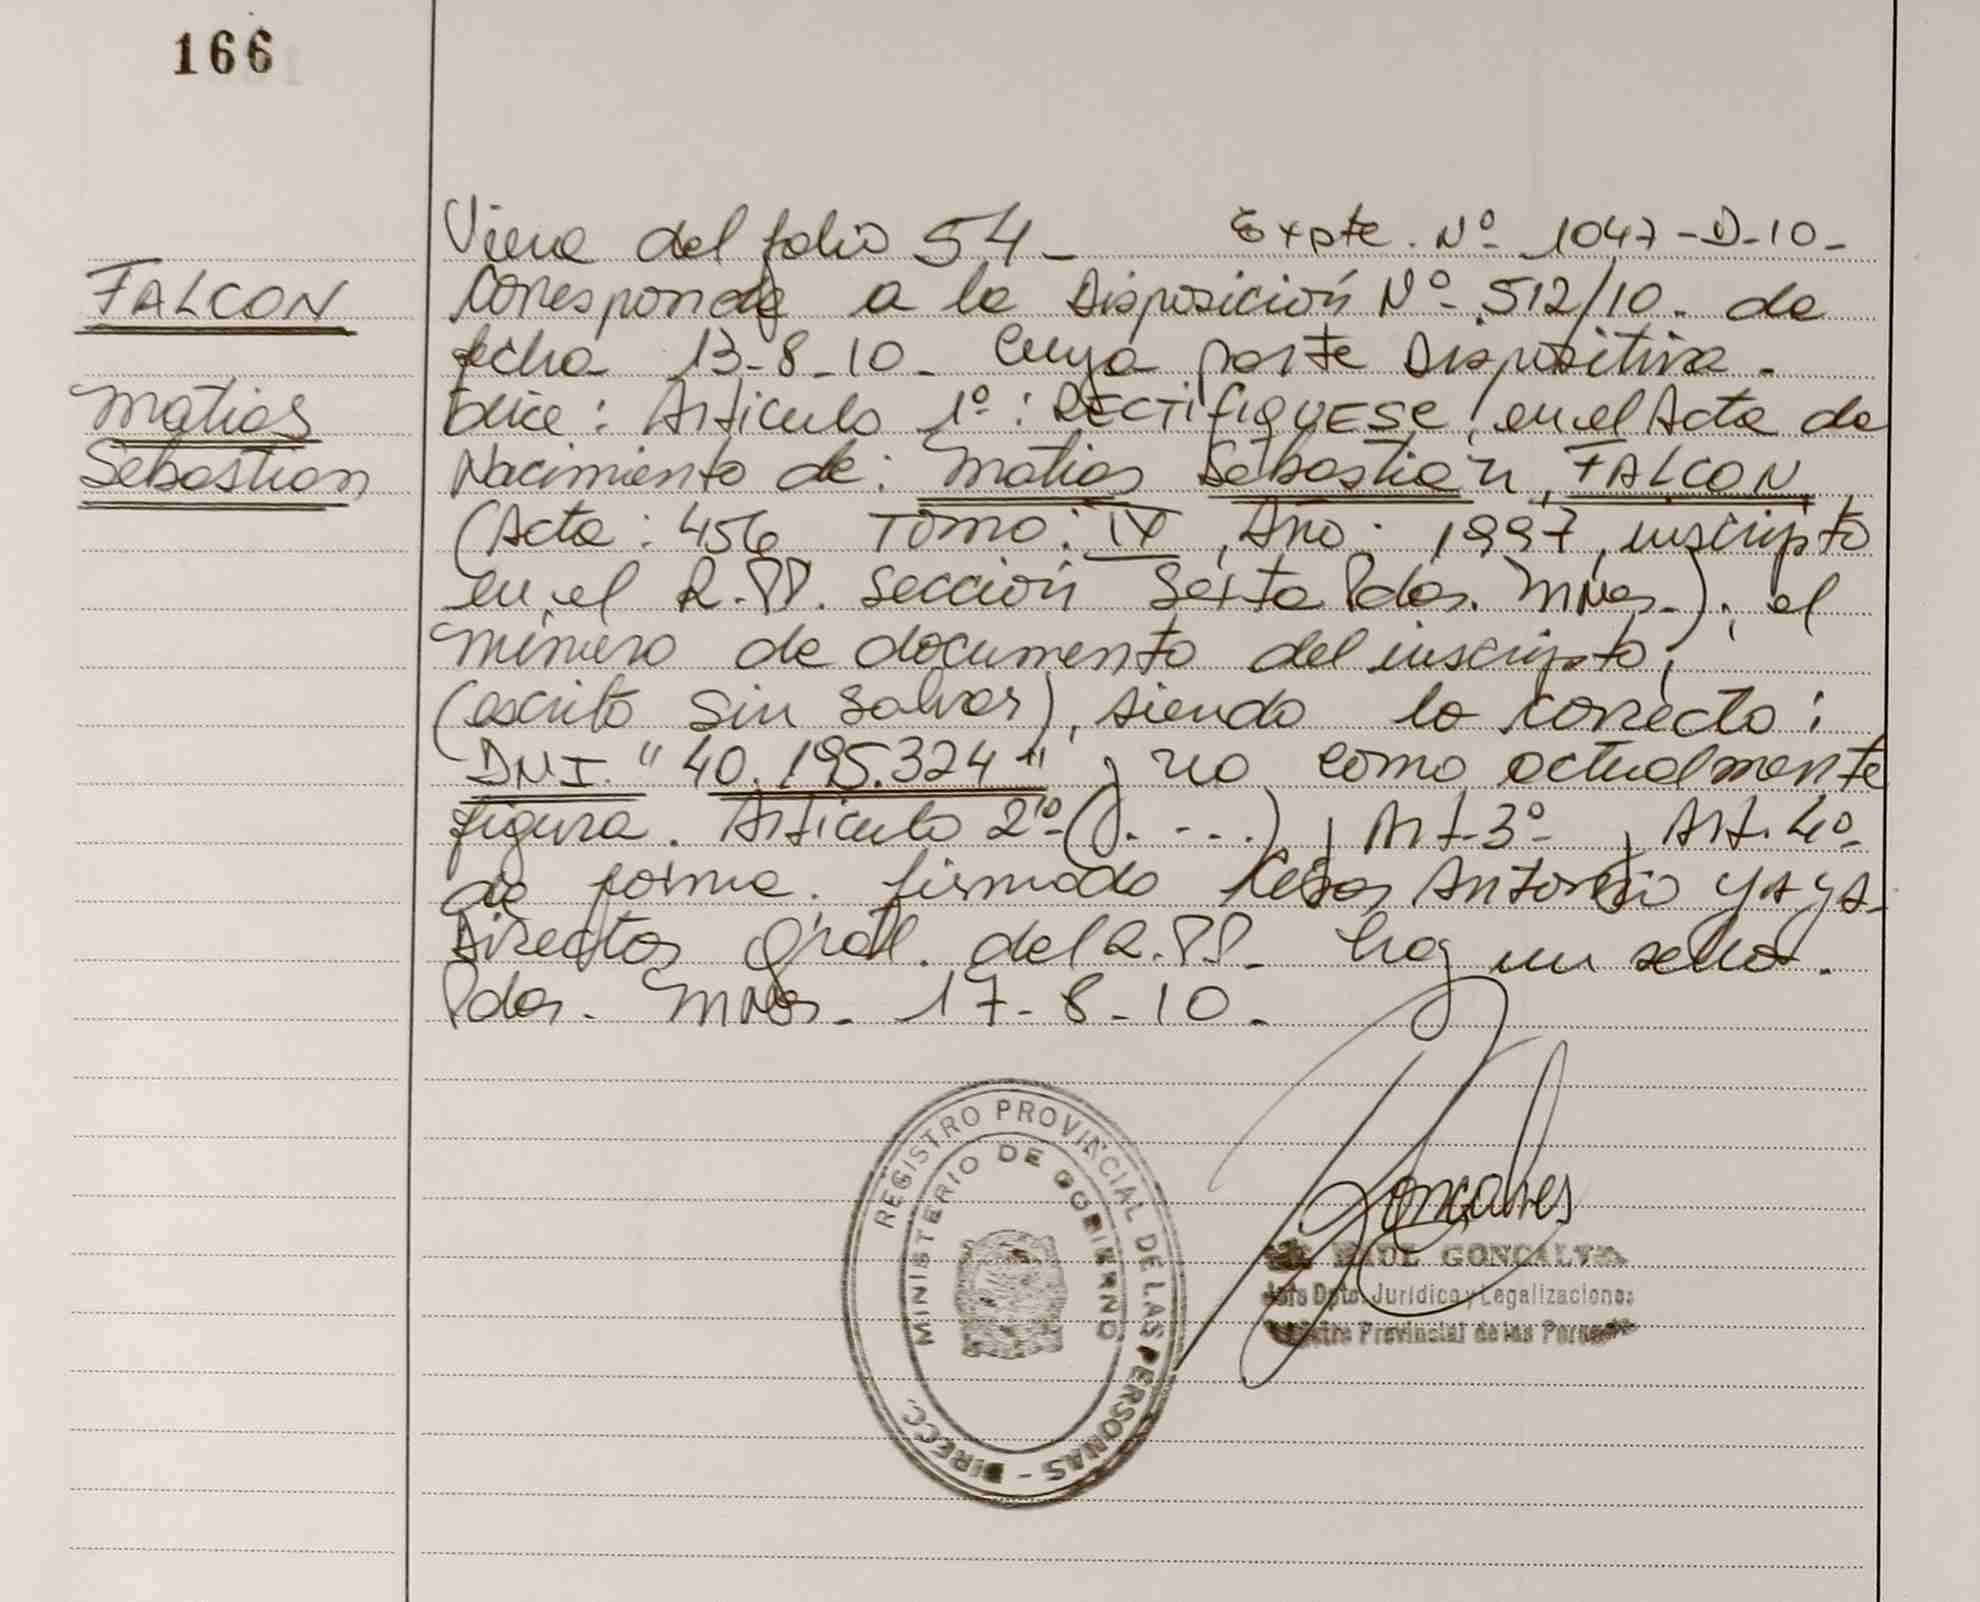 166
FALCON
Matias
Sebastian
Viene del folio 54- Expte. Nº 1047-D-10-
Corresponde a la Disposición Nº 512/10. de
fecha 13-8-10- Cuya parte Dispositiva.
Dice: Articulo 1º: RECTIFIQUESE, en el Acta de
Nacimiento de: Matias Sebastian, FALCON
(Acta: 456 Tomo: IV, Año: 1997, inscripto
en el R.PP. Sección Sexta Pdas. Mnes.), el
número de documento del inscripto,
(escrito sin salvar), siendo lo correcto:
DNI. "40.195.324" y no como actualmente
figura. Articulo 2º (....), Art. 3º, Art. 4º
de forma. firmado Antonio YAYA-
Director Gral. del R.PP. hay un sello.
Pdas. Mnes. 17-8-10-
REGISTRO PROVINCIAL DE LAS PERSONAS - DIRECC.
MINISTERIO DE GOBIERNO
Goncalves
RAUL GONCALVES
Jefe Dpto. Jurídico y Legalizaciones
Registro Provincial de las Personas